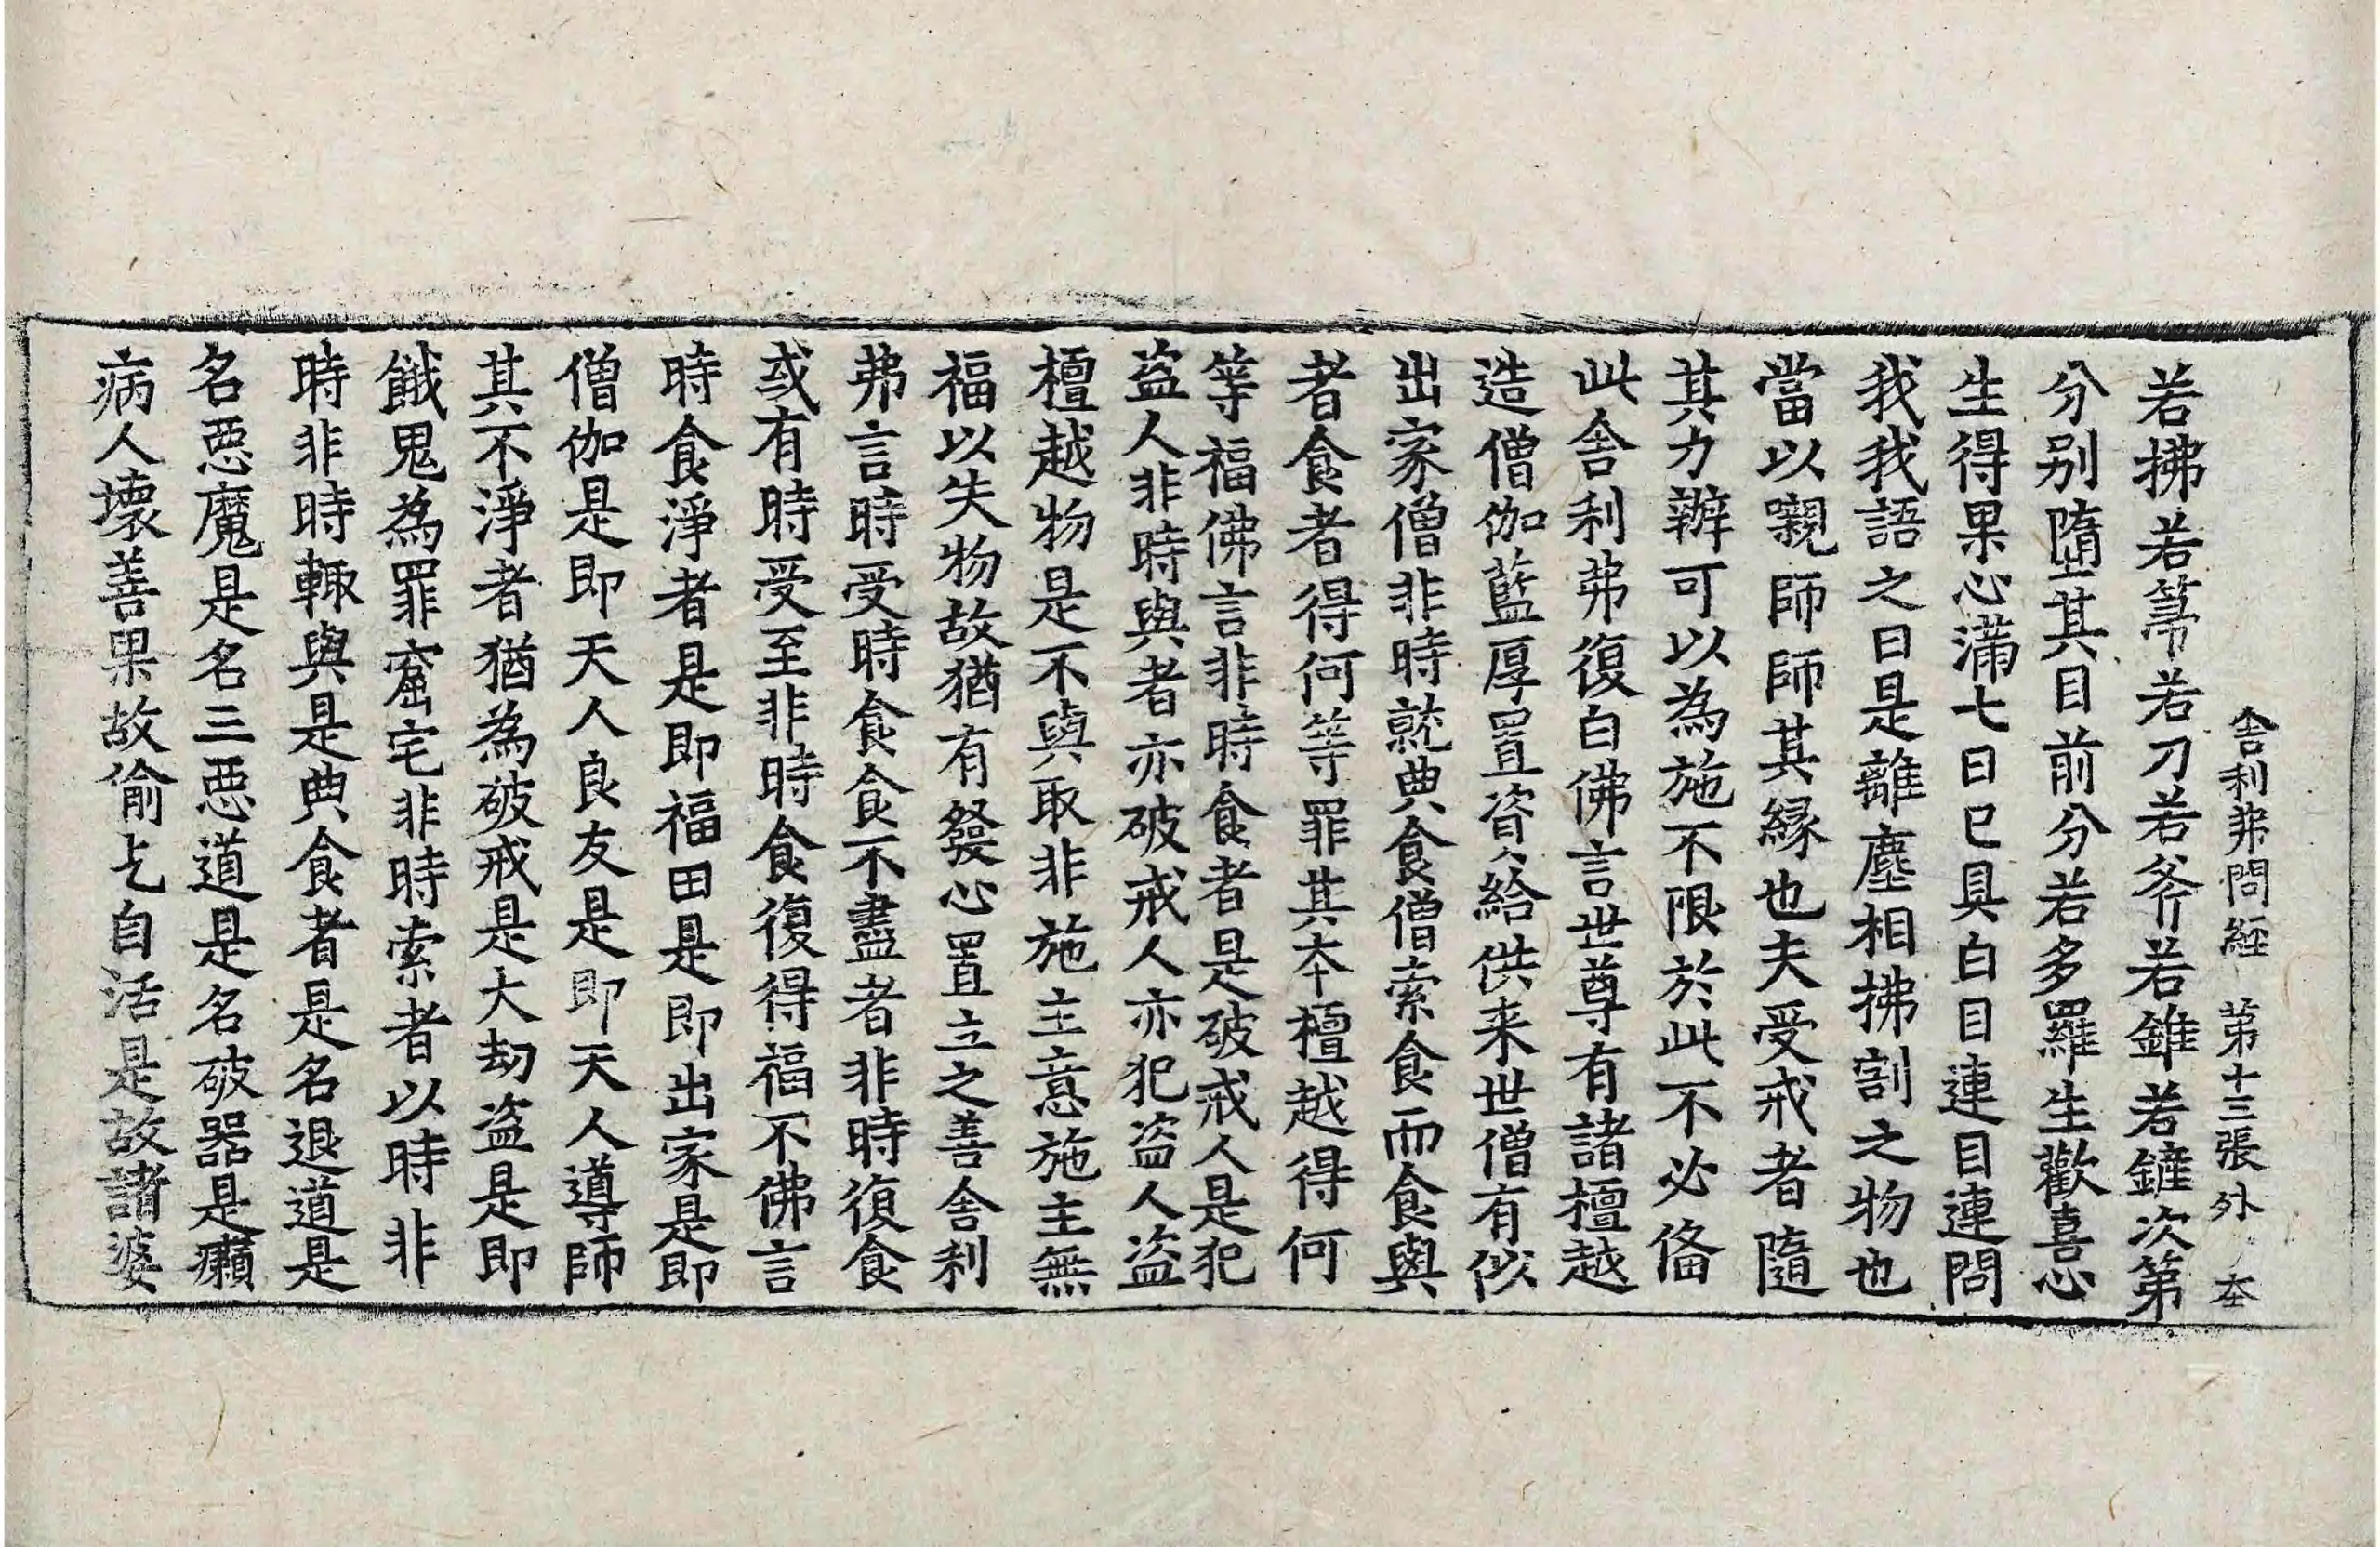 舎利弗問経 第十三張 外 本
若拂若箒若刀若斧若錐若鏟次第
分別墮其目前分若多羅生歡喜心
生得果心滿七日已具白目連目連問
我我語之曰是離塵相拂割之物也
當以嚫師師其縁也夫受戒者隨
其力辦可以為施不限於此不必俻
此舎利弗復白佛言世尊有諸檀越
造僧伽藍厚置資給供来世僧有似
出家僧非時就典食僧索食而食與
者食者得何等罪其本檀越得何
等福佛言非時食者是破戒人是犯
盗人非時與者亦破戒人亦犯盗人盗
檀越物是不與取非施主意施主無
福以失物故猶有發心置立之善舎利
弗言時受時食食不盡者非時復食
或有時受至非時食復得福不佛言
時食淨者是即福田是即出家是即
僧伽是即天人良友是即天人導師
其不淨者猶為破戒是大劫盗是即
餓鬼為罪窟宅非時索者以時非
時非時輙與是典食者是名退道是
名惡魔是名三惡道是名破器是癩
病人壞善果故偷乞自活是故諸婆